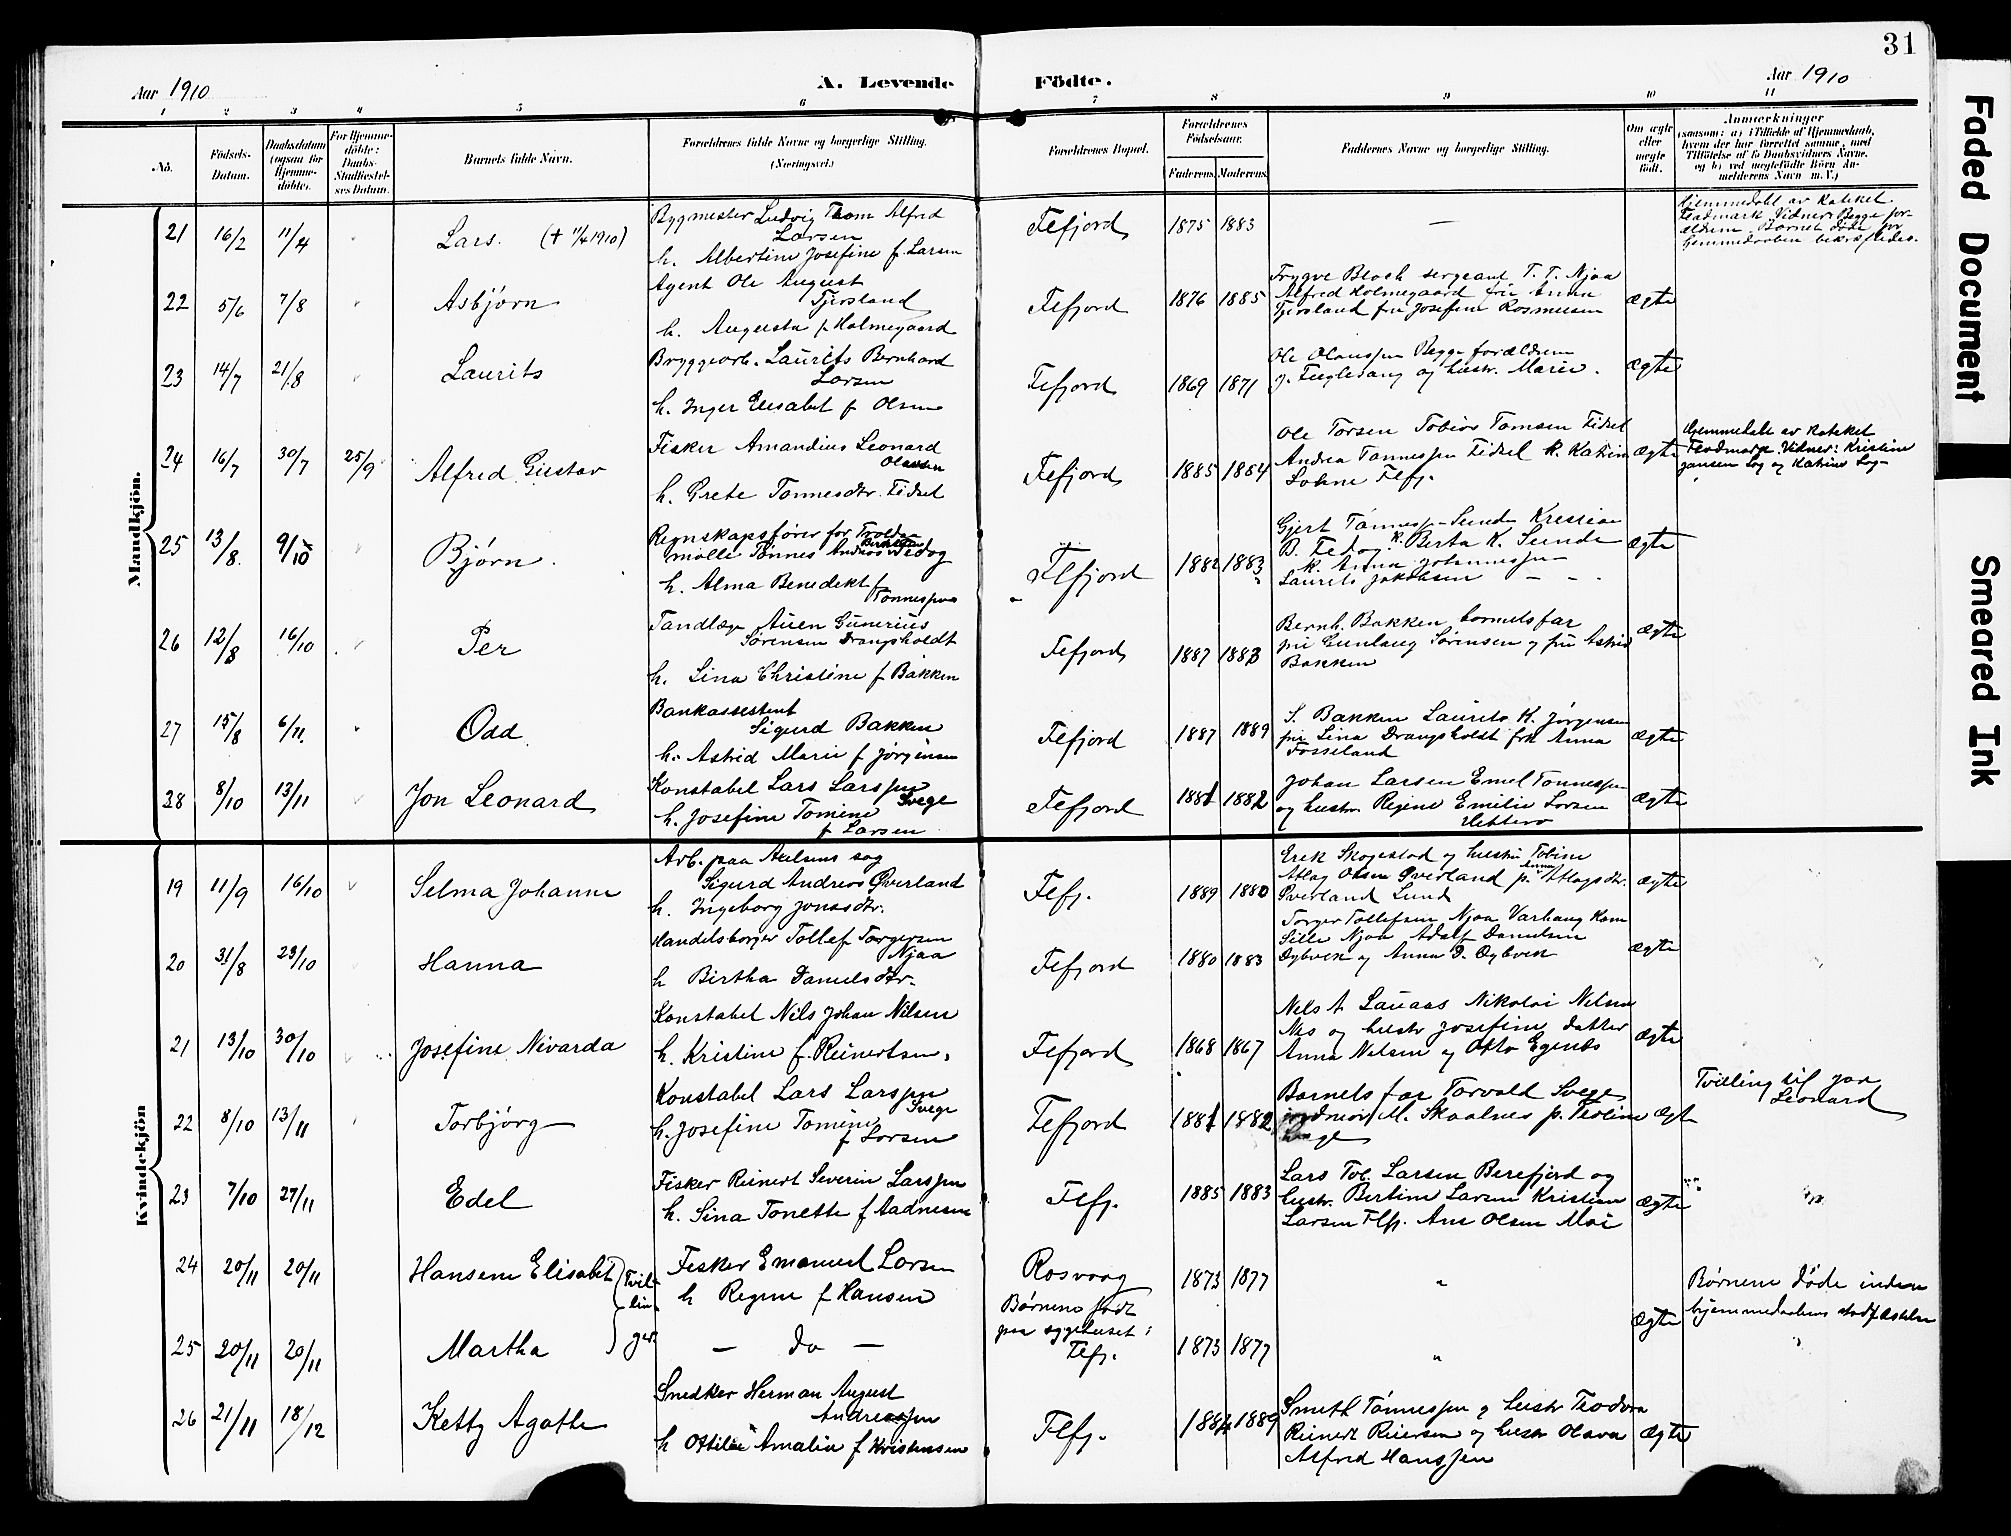 31
Aar 1910
A. Levende Födte.
Aar 1910
1 2 3 4 5 6 7 8 9 10 11
No.
Födsels-
Datum.
Daabsdatum
(ogsaa for
Hjemme-
döbte).
For Hjemme-
döbte:
Daabs-
Stadfæstel-
ses Datum.
Barnets fulde Navn.
Forældrenes fulde Navne og borgerlige Stilling.
(Næringsvei.)
Forældrenes Bopæl.
Forældrenes
Födselsaar.
Faderens. Moderens.
Faddernes Navne og borgerlige Stilling.
Om ægte
eller
uægte
födt.
Anmærkninger
(saasom: a) i Tilfælde af Hjemmedaab,
hvem der har forrettet samme, med
Tilföielse af to Daabsvidners Navne,
og b) ved uægtefödte Börn An-
melderens Navn m. V.)
Mandkjön.
21 16/2 11/4 Lars. († 11/4 1910)
Bygmester Ludvig Thom Alfred
Larsen
h. Albertine Josefine f. Larsen
Flefjord 1875 1883 —
Hjemmedøbt av Kateket
Fladmark Vidner: Begge for-
ældrene. Barnet døde før
hjemmedaaben bekræftedes.
22 5/6 7/8 Asbjørn
Agent Ole August
Tjersland
h. Augusta f Holmegaard
Flefjord 1876 1885
Trygve Bloch sergeant T. T. Njaa
Alfred Holmegaard frk Anna
Tjersland fru Josefine Rasmussen
ægte
23 14/7 21/8 Laurits
Bryggearb. Laurits Bernhard
Larsen
h. Inger Elisabet f Olsen
Flefjord 1869 1871
Ole Olaussen Begge forældrene
J. Fuglevang og hustr. Marie.
ægte
24 16/7 30/7 25/9 Alfred Gustav
Fisker Amandius Leonard
Olaussen
h. Grete Tønnesdtr. Fidsel
Flefjord 1885 1884
Ole Torsen Tobias Tomsen Fidsel
Andrea Tønnessen Fidsel k. Katrine
Lohne Flefj.
ægte
Hjemmedøbt av Kateket
Fladmark. Vidner: Kristine
Jansen Log og Katrine Log
25 13/8. 9/10 Bjørn.
Regnskapsfører for Trælde
mølle Tønnes Andreas Fedog
h. Alma Benedikt f
Tønnessen
Flefjord 1882 1883
Gjert Tønness. Sunde Kristian
B. Fedog. k. Berta K. Sunde
k. Anna Johannessen
Laurits Jakobsen — -
ægte
26 12/8 16/10 Per
Tandlæge Auen Gunerius
Sørensen Drangsholdt
h. Lina Christine f Bakken
Flefjord 1887 1883
Bernh. Bakken, barnets far
fru Gunlaug Sørensen og fru Astrid
Bakken
ægte
27 15/8 6/11. Odd
Bankassistent
Sigurd Bakken
h. Astrid Marie f Jørgensen
Flefjord 1887 1889
S. Bakken Laurits K. Jørgensen
fru Lina Drangsholdt frk Anna
Fosseland
ægte
28 8/10 13/11 Jon Leonard
Konstabel Lars Larssen
Svege
h. Josefine Tomine
f Larsen
Flefjord 1881 1882
Johan Larsen Emel Tønnessen
og hustr. Regine Emilie Larsen
Hitterø
ægte
Kvindekjön
19 11/9 16/10 Selma Johanne
Arb. paa Axelsens sag
Sigurd Andreas Øverland
h. Ingeborg Jonasdtr.
Flefj. 1889 1880
Erik Skogestad og hustru Tobine
Atlag Olsen Øverland p. Anna Atlagsdtr.
Øverland Lund
ægte
20 31/8 23/10 Hanna
Handelsborger Tollef Torgersen
Njaa
h Birtha Danielsdtr.
Flefjord 1880 1883
Torger Tollefsen Njaa Varhaug Kom
Sille Njaa Adolf Danielsen
Dybvik og Anna D. Dybvik
ægte
21 13/10 30/10 Josefine Nivarda
Konstabel Nils Johan Nilsen
h. Kristine f. Reinertsen,
Flefjord 1868 1867
Nels A Lauaas Nikolai Nilsen
Nes og hustr Josefine datter
Anna Nelsen og Otto Egenes
ægte
22 8/10 13/11 Torbjørg
Konstabel Lars Larssen
Svege
h. Josefine Tomine
f Larsen
Flefjord 1881 1882
Barnets far Torvald Svege
M. Skaalnes p. Teoline
Svege
ægt
Tvilling til Jon
Leonard
23 7/10 27/11 Edel
Fisker Reinert Severin Larssen
h. Sina Tonette f Aadnesen
Flefj. 1885 1883
Lars Tob. Larsen Berefjord og
hustr. Bertine Larsen Kristian
Larsen Flfj. Ane Olsen Moi
ægte
24 20/11 20/11 Hansene Elisabet Tvil-
lin-
ger
Fisker Emanuel Larsen
h Regine f Hansen
Rosvaag
Børnene født
paa sygehuset i
Flefj.
1873 1877 "
ægte
Børnene døde inden
hjemmedaabens stadfæstelse
25 20/11 20/11 Martha
— do —
1873 1877 "
26 21/11 18/12 Ketty Agathe
Snedker Herman August
Andreassen
h Ottilie Amalia f Kristensen
Flfj. 1884 1889
Smith Tønnessen og hustr Teodora
Reinert Reiersen og hustr Olava
Alfred Hanssen
ægte
Faded Document
Smeared Ink